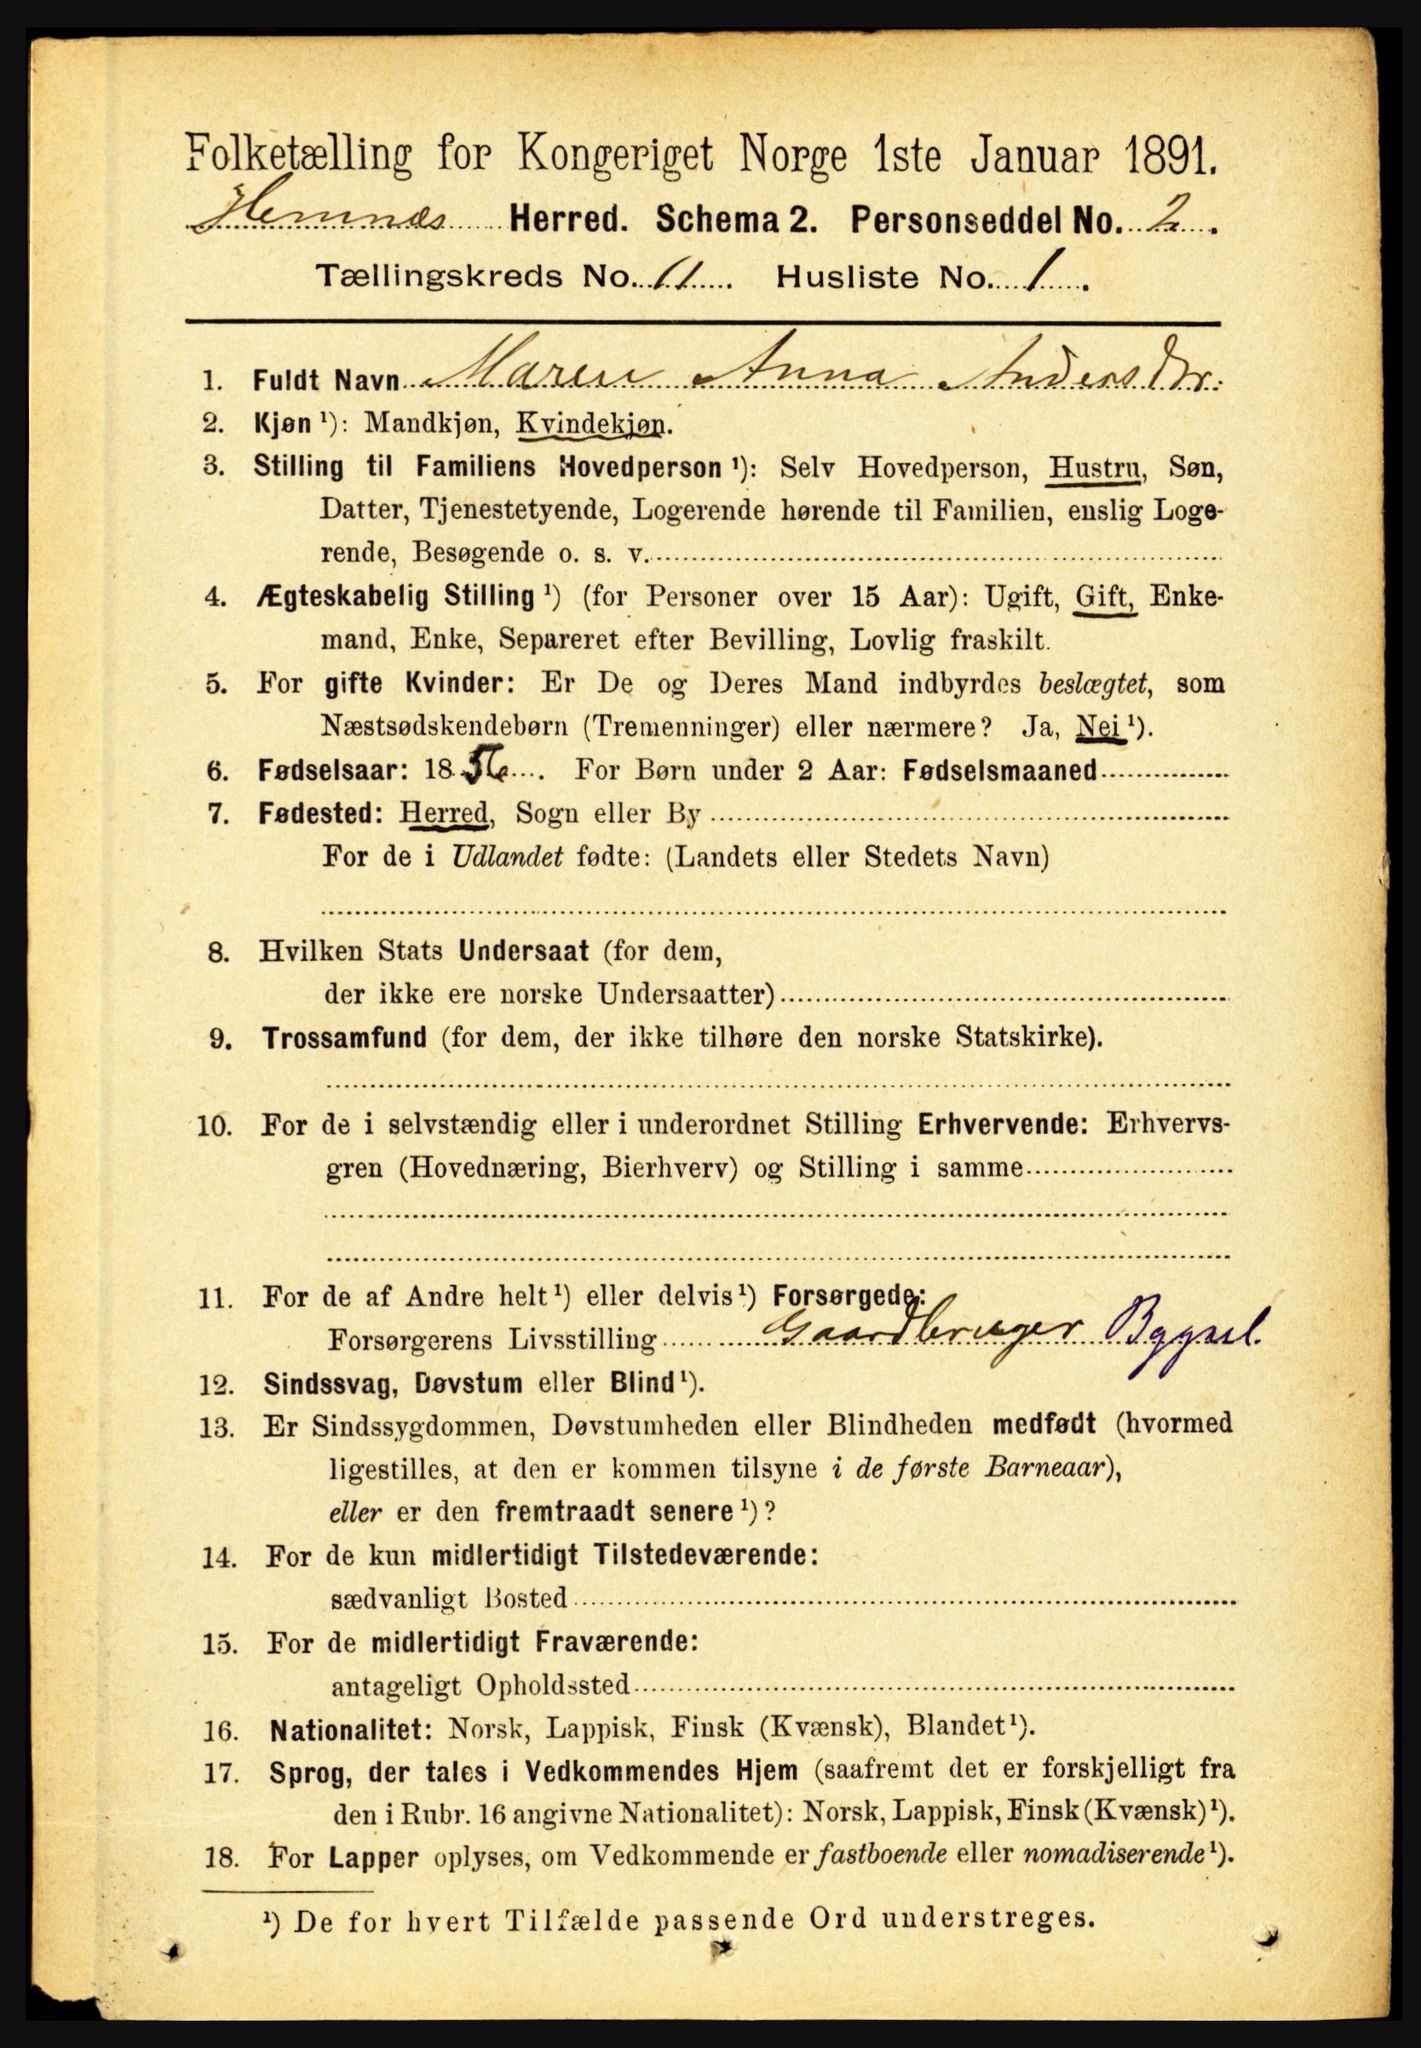 Folketælling for Kongeriget Norge 1ste Januar 1891.
Hemnæs Herred. Schema 2. Personseddel No. 2.
Tællingskreds No. 11. Husliste No. 1.
1. Fuldt Navn Maren Anna Andersdtr.
2. Kjøn ¹): Mandkjøn, Kvindekjøn.
3. Stilling til Familiens Hovedperson ¹): Selv Hovedperson, Hustru, Søn,
Datter, Tjenestetyende, Logerende hørende til Familien, enslig Loge-
rende, Besøgende o. s. v.
4. Ægteskabelig Stilling ¹) (for Personer over 15 Aar): Ugift, Gift, Enke-
mand, Enke, Separeret efter Bevilling, Lovlig fraskilt.
5. For gifte Kvinder: Er De og Deres Mand indbyrdes beslægtet, som
Næstsødskendebørn (Tremenninger) eller nærmere? Ja, Nei ¹).
6. Fødselsaar: 1856. For Børn under 2 Aar: Fødselsmaaned
7. Fødested: Herred, Sogn eller By
For de i Udlandet fødte: (Landets eller Stedets Navn)
8. Hvilken Stats Undersaat (for dem,
der ikke ere norske Undersaatter)
9. Trossamfund (for dem, der ikke tilhøre den norske Statskirke).
10. For de i selvstændig eller i underordnet Stilling Erhvervende: Erhvervs-
gren (Hovednæring, Bierhverv) og Stilling i samme
11. For de af Andre helt ¹) eller delvis ¹) Forsørgede:
Forsørgerens Livsstilling Gaardbruger Bygsel.
12. Sindssvag, Døvstum eller Blind ¹).
13. Er Sindssygdommen, Døvstumheden eller Blindheden medfødt (hvormed
ligestilles, at den er kommen tilsyne i de første Barneaar),
eller er den fremtraadt senere ¹)?
14. For de kun midlertidigt Tilstedeværende:
sædvanligt Bosted
15. For de midlertidigt Fraværende:
antageligt Opholdssted
16. Nationalitet: Norsk, Lappisk, Finsk (Kvænsk), Blandet ¹).
17. Sprog, der tales i Vedkommendes Hjem (saafremt det er forskjelligt fra
den i Rubr. 16 angivne Nationalitet): Norsk, Lappisk, Finsk (Kvænsk) ¹).
18. For Lapper oplyses, om Vedkommende er fastboende eller nomadiserende ¹).
¹) De for hvert Tilfælde passende Ord understreges.